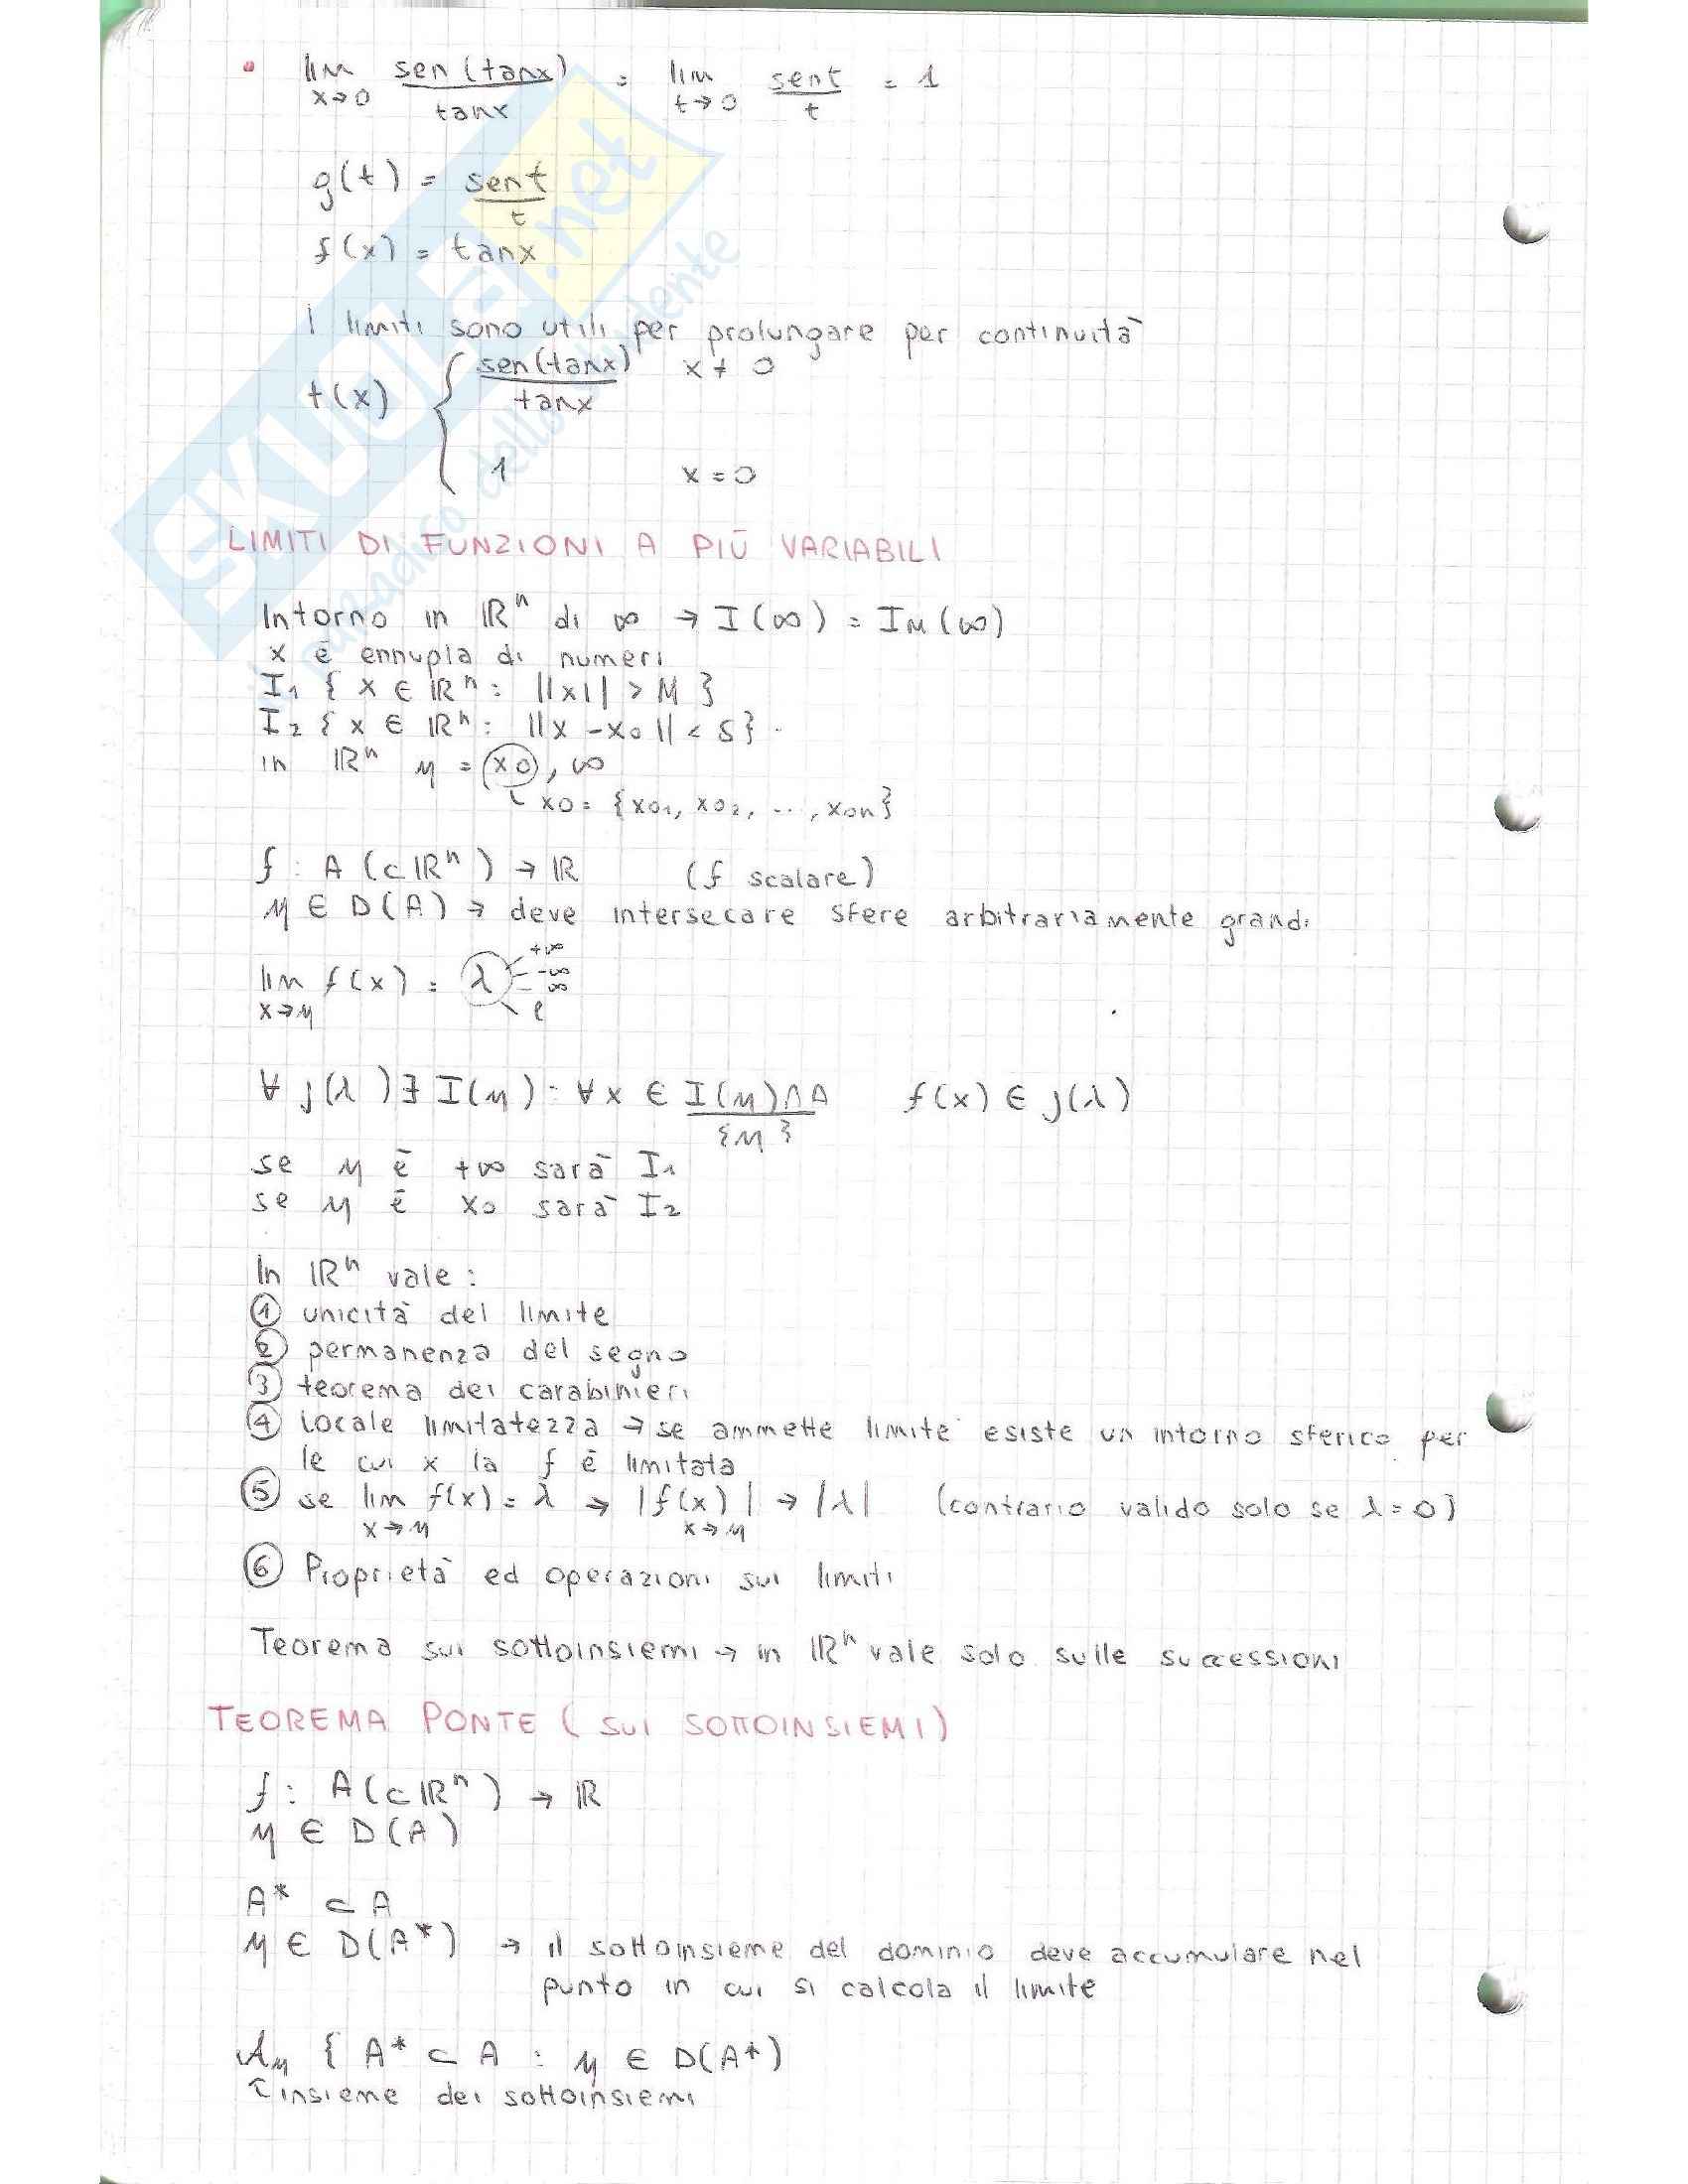 • lim x→0 sen(tanx)/tanx = lim t→0 sent/t = 1
g(t) = sent/t
f(x) = tanx
I limiti sono utili per prolungare per continuità
t(x) { sen(tanx)/tanx x ≠ 0
1 x = 0
LIMITI DI FUNZIONI A PIÙ VARIABILI
Intorno in ℝⁿ di ∞ → I(∞) = IM(∞)
x è ennupla di numeri
I₁ { x ∈ ℝⁿ : ||x|| > M }
I₂ { x ∈ ℝⁿ : ||x - x₀|| < S }
in ℝⁿ η = x₀, ∞
x₀ = {x₀₁, x₀₂, ..., x₀n}
f : A (⊂ ℝⁿ) → ℝ (f scalare)
η ∈ D(A) → deve intersecare sfere arbitrariamente grandi
lim x→η f(x) = λ +∞ -∞ ∞ l
∀ j(λ) ∃ I(η) : ∀ x ∈ I(η)∩A / {η} f(x) ∈ j(λ)
se η è +∞ sarà I₁
se η è x₀ sarà I₂
In ℝⁿ vale :
① unicità del limite
② permanenza del segno
③ teorema dei carabinieri
④ locale limitatezza → se ammette limite esiste un intorno sferico per
le cui x la f è limitata
⑤ se lim x→η f(x) = λ → |f(x)| x→η → |λ| (contrario valido solo se λ = 0)
⑥ Proprietà ed operazioni sui limiti
Teorema sui sottoinsiemi → in ℝⁿ vale solo sulle successioni
TEOREMA PONTE ( SUI SOTTOINSIEMI )
f : A (⊂ ℝⁿ) → ℝ
η ∈ D(A)
A* ⊂ A
η ∈ D(A*) → il sottoinsieme del dominio deve accumulare nel
punto in cui si calcola il limite
𝒜η { A* ⊂ A : η ∈ D(A*)
insieme dei sottoinsiemi
SKUOLA.net
il paradiso dello studente